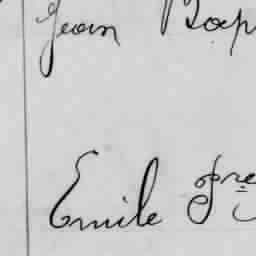 Jean Bap
Emile